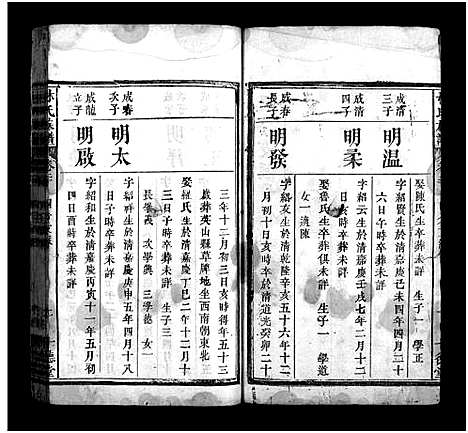 成清
三子
明温
字紹賢生於清嘉慶己未四年四月二十
六日午時卒葬未詳
娶陳氏生卒葬未詳 生子一 學正
成清
四子
明柔
字紹云生於清嘉慶壬戌七年二月十二
日亥時卒葬未詳
娶魯氏生卒葬俱未詳 生子一 學道
女一 適陳
成春
長子
明發
字紹亥生於清乾隆辛亥五十六年十一
月初十日亥時卒於清道光癸卯二十
三年十二月初三日亥時得年五十三
歲葬英山縣草牌地坐西南朝東北
娶 氏生於清嘉慶丁巳二年十二月十
三日子時卒葬未詳 生子三
長學義 次學奠 三學德 女一
成春
次子
明太
字紹生於清嘉慶庚申五年四月十八
日子時卒葬未詳
成龍
立子
明啟
字紹和生於清嘉慶丙寅十一年五月初
四日酉時卒葬未詳
林氏族譜